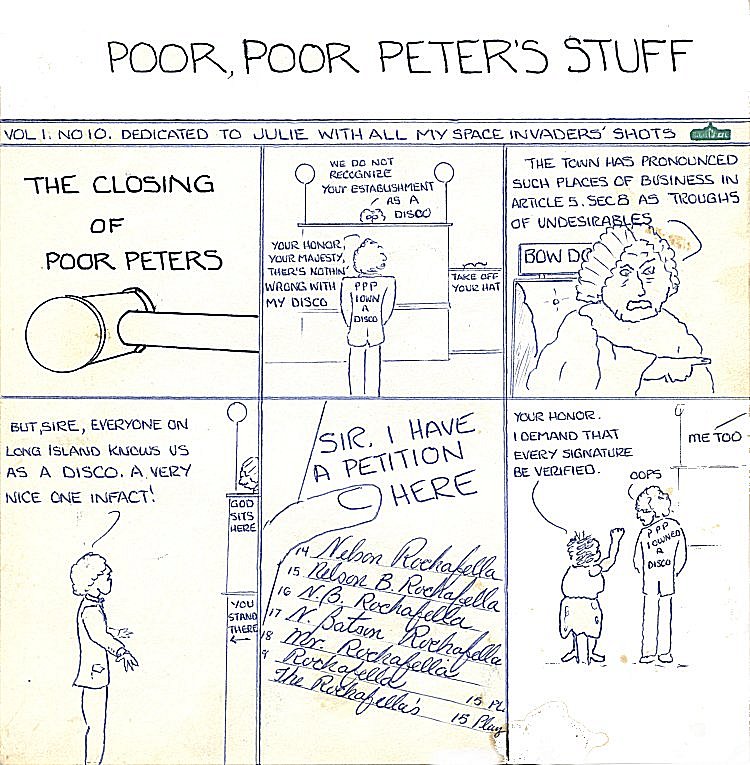 POOR, POOR PETER'S STUFF
VOL 1. NO 10. DEDICATED TO JULIE WITH ALL MY SPACE INVADERS' SHOTS
THE CLOSING
OF
POOR PETERS
WE DO NOT
RECOGNIZE
YOUR ESTABLISHMENT
AS A
DISCO
YOUR HONOR,
YOUR MAJESTY,
THER'S NOTHIN'
WRONG WITH
MY DISCO
PPP
I OWN
A
DISCO
TAKE OFF
YOUR HAT
THE TOWN HAS PRONOUNCED
SUCH PLACES OF BUSINESS IN
ARTICLE 5. SEC 8 AS TROUGHS
OF UNDESIRABLES
BOW DO
BUT, SIRE, EVERYONE ON
LONG ISLAND KNOWS US
AS A DISCO. A VERY
NICE ONE INFACT!
GOD
SITS
HERE
YOU
STAND
THERE
SIR, I HAVE
A PETITION
HERE
14 Nelson Rochafella
15 Nelson B. Rochafella
16 N.B. Rochafella
17 N. Batson Rochafella
18 Mr. Rochafella
9 Rochafella 15 PL
The Rochafella's 15 Play
YOUR HONOR.
I DEMAND THAT
EVERY SIGNATURE
BE VERIFIED.
OOPS
ME TOO
PPP
I OWNED
A
DISCO